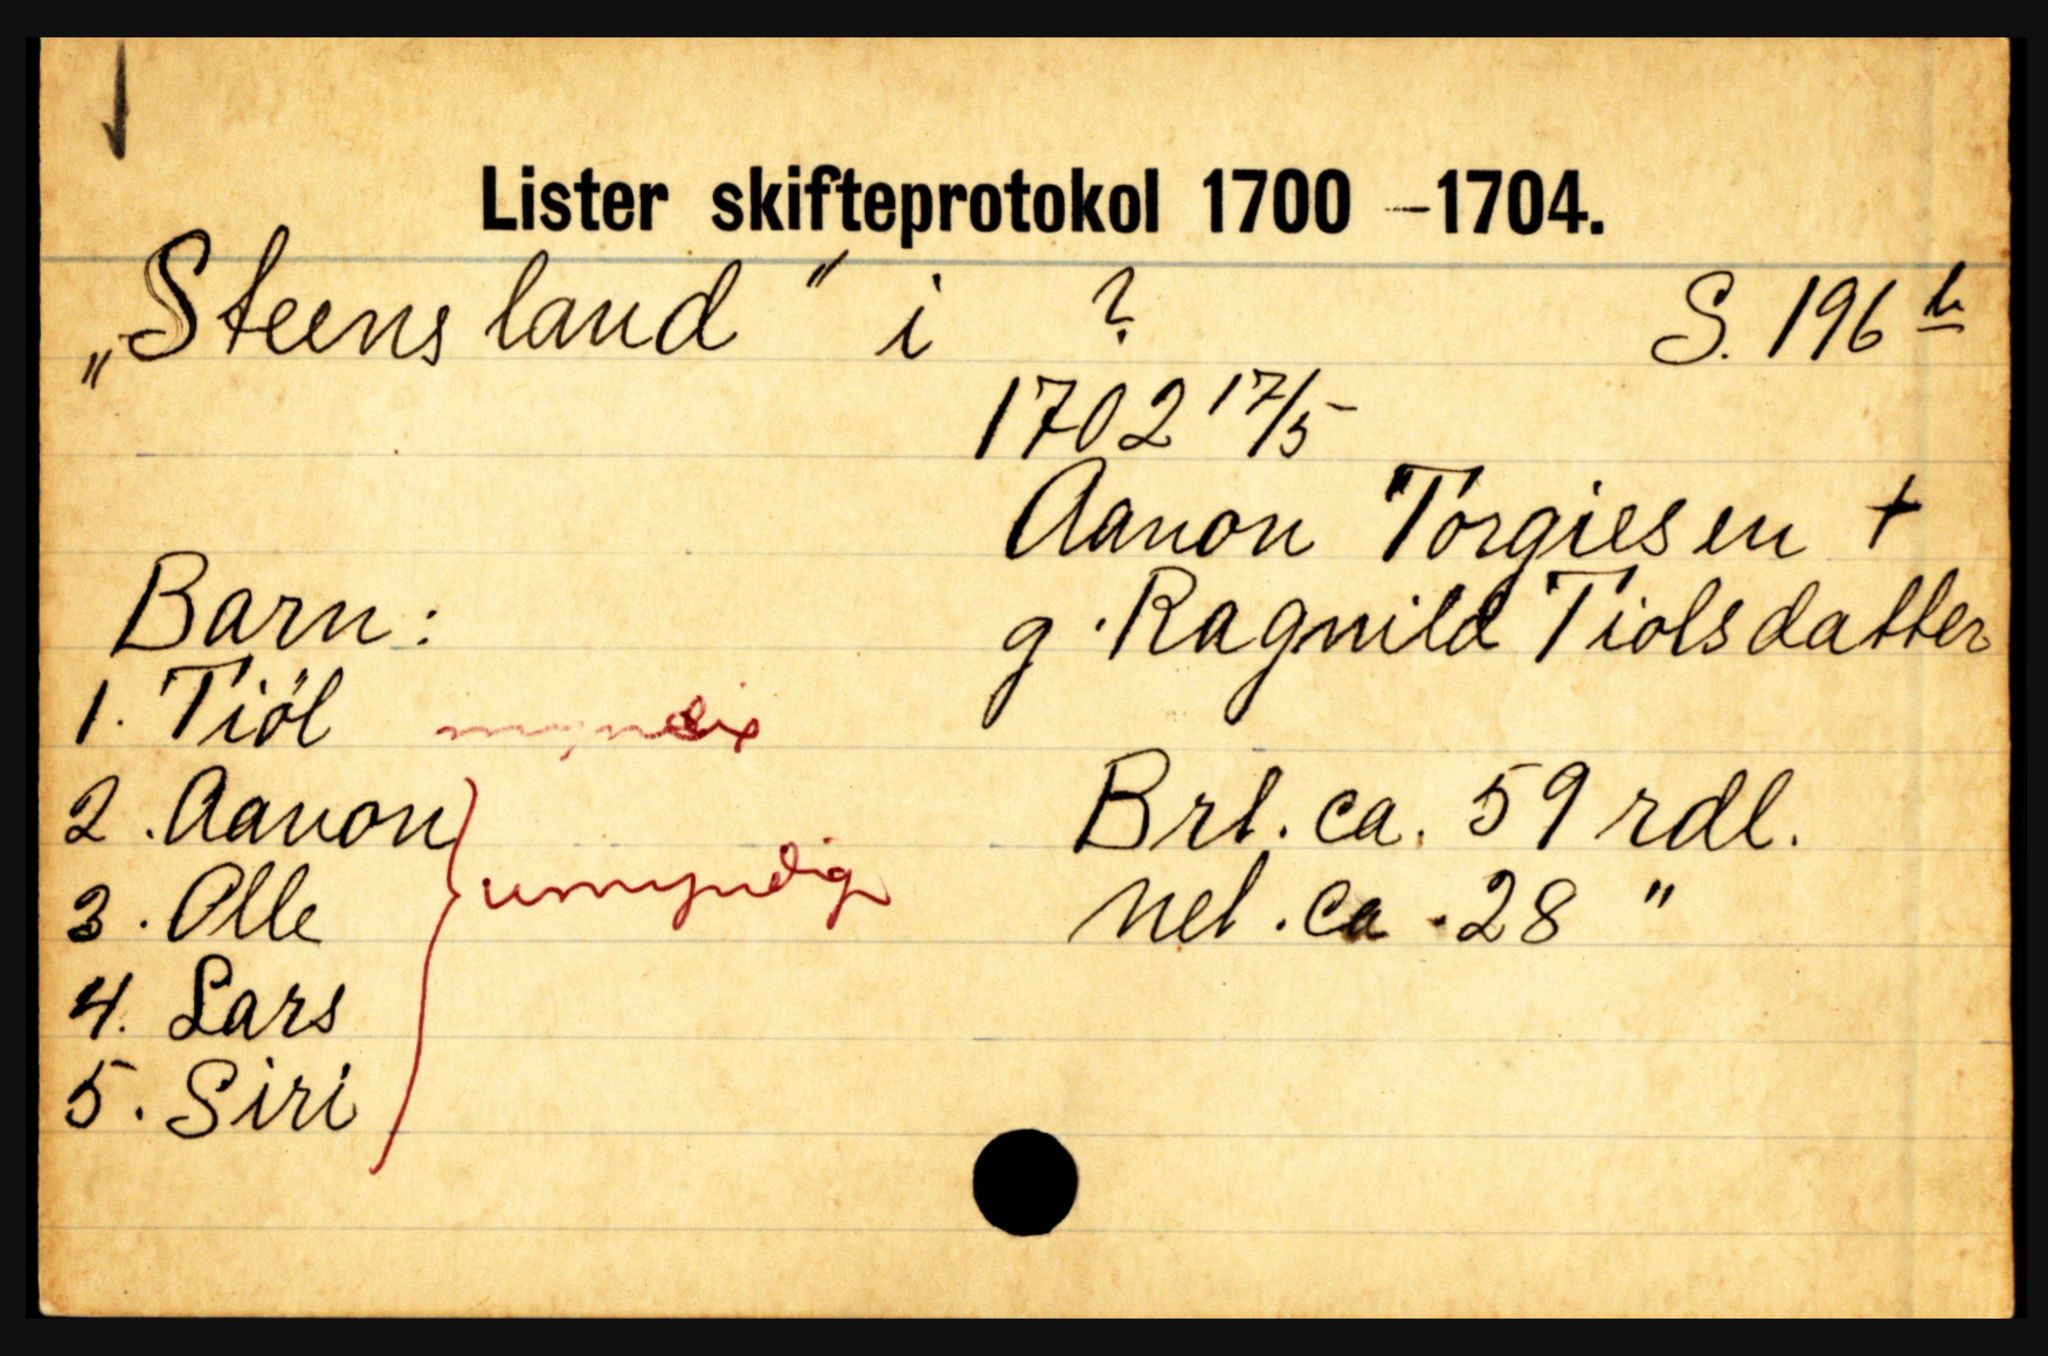 Lister skifteprotokol 1700 – 1704.
„Steensland" i ? S. 196 b
1702 17/5
Aanon Torgiesen +
g. Ragnild Tiolsdatter
Barn:
1. Tiöl myndig
2. Aanon
3. Olle umyndig
4. Lars
5. Siri
Brt. ca. 59 rdl.
net. ca. 28 "